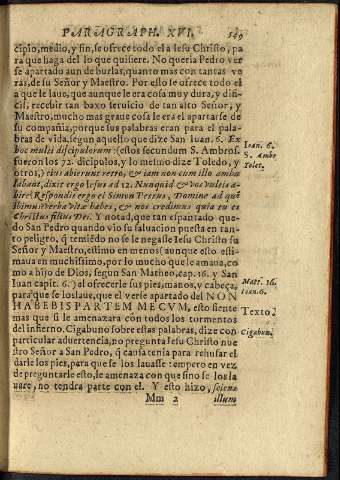 PARAGRAPH. XVI.
149
cipio, medio, y fin, se ofrece todo el a Iesu Christo, pa
ra que haga del lo que quisiere. No queria Pedro ver
se apartado aun de burlas, quanto mas con tantas ve
ras, de su Señor y Maestro. Por esso le ofrece todo el
a que le laue, que aunque le era cosa muy dura, y difi-
cil, recebir tan baxo seruicio de tan alto Señor, y
Maestro, mucho mas graue cosa le era el apartarse de
su compañia, porque sus palabras eran para el pala-
bras de vida, segun aquello que dize San Iuan. 6. Ex
hoc multi discipulorum: (estos segundum S. Ambros.
fueron los 72. dicipulos, y lo mesmo dize Toledo, y
otros,) eius abierunt retro, & iam non cum illo ambu
labant, dixit ergo Iesus ad 12. Nunquid & vos vultis a-
bire? Respondit ergo ei Simon Petrus, Domine ad quē
ibimus? verba vitæ habes, & nos credimus quia tu es
Christus filius Dei. Y notad, que tan espantado que-
do San Pedro quando vio su saluacion puesta en tan-
to peligro, q̄ temiēdo no se le negasse Iesu Christo su
Señor y Maestro, estimo en menos (aunque esto esti-
maua en muchissimo, por lo mucho que le amaua, co
mo a hijo de Dios, segun San Matheo, cap. 16. y San
Iuan capit. 6.) al ofrecerle sus pies, manos, y cabeça,
para que se los laue, que el verse apartado del NON
HABEBIS PARTEM MECVM, esto siente
mas que si le amenazara con todos los tormentos
del infierno. Cigabuno sobre estas palabras, dize con
particular aduertencia, no pregunta Iesu Christo nue
stro Señor a San Pedro, q̄ causa tenia para rehusar el
darle los pies, para que se los lauasse: empero en vez
de preguntarle esto, le amenaza con que sino se los la
uare, no tendra parte con el. Y esto hizo, sciens
Mm 2 illum
Ioan. 6.
S. Ambr.
Tolet.
Mat. 16.
Ioan. 6.
Texto.
Cigabun.